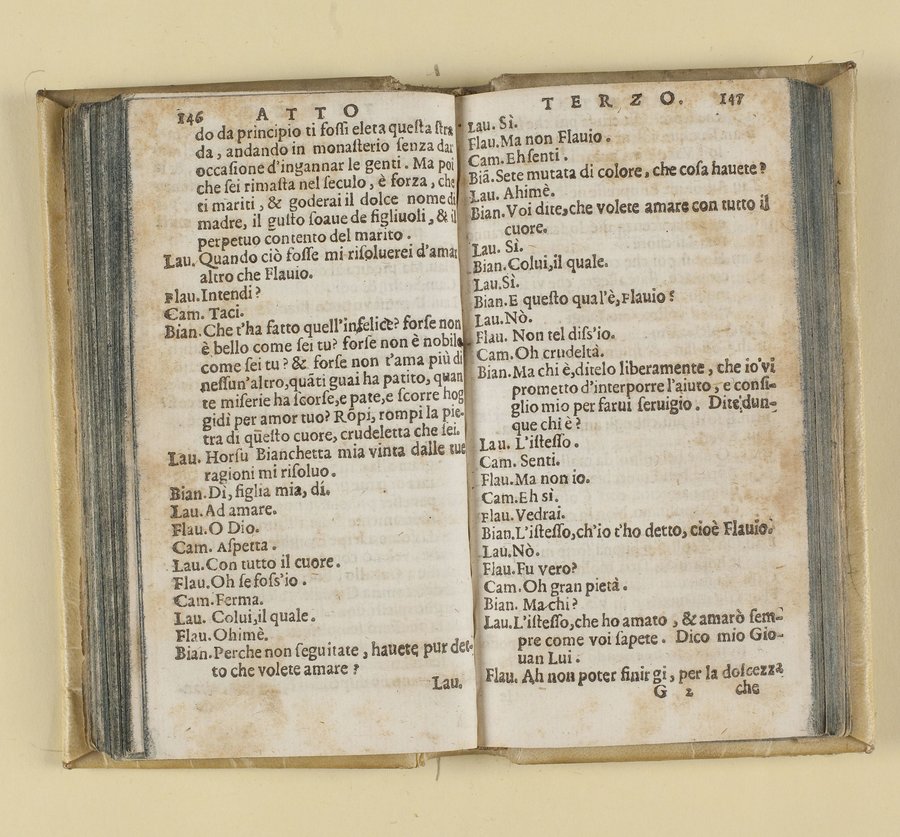 146 ATTO
do da principio ti foſſi eleta queſta ſtra
da, andando in monaſterio ſenza dar
occaſione d'ingannar le genti. Ma poi
che ſei rimaſta nel ſeculo, è forza, che
ti mariti, & goderai il dolce nome di
madre, il guſto ſoaue de figliuoli, & il
perpetuo contento del marito.
Lau. Quando ciò foſſe mi riſoluerei d'amar
altro che Flauio.
Flau. Intendi?
Cam. Taci.
Bian. Che t'ha fatto quell'infelice? forſe non
è bello come ſei tu? forſe non è nobile
come ſei tu? & forſe non t'ama più di
neſſun'altro, quāti guai ha patito, quan
te miſerie ha ſcorſe, e pate, e ſcorre hog
gidì per amor tuo? Rōpi, rompi la pie-
tra di queſto cuore, crudeletta che ſei.
Lau. Horſu Bianchetta mia vinta dalle tue
ragioni mi riſoluo.
Bian. Di, figlia mia, dí.
Lau. Ad amare.
Flau. O Dio.
Cam. Aſpetta.
Lau. Con tutto il cuore.
Flau. Oh ſe foſs'io.
Cam. Ferma.
Lau. Colui, il quale.
Flau. Ohimè.
Bian. Perche non ſeguitate, hauete pur det-
to che volete amare?
Lau.
TERZO. 147
Lau. Sì.
Flau. Ma non Flauio.
Cam. Eh ſenti.
Biā. Sete mutata di colore, che coſa hauete?
Lau. Ahimè.
Bian. Voi dite, che volete amare con tutto il
cuore.
Lau. Sì.
Bian. Colui, il quale.
Lau. Sì.
Bian. E queſto qual'è, Flauio?
Lau. Nò.
Flau. Non tel diſs'io.
Cam. Oh crudeltà.
Bian. Ma chi è, ditelo liberamente, che io vi
prometto d'interporre l'aiuto, e conſi-
glio mio per farui ſeruigio. Dite dun-
que chi è?
Lau. L'iſteſſo.
Cam. Senti.
Flau. Ma non io.
Cam. Eh si.
Flau. Vedrai.
Bian. L'iſteſſo, ch'io t'ho detto, cioè Flauio.
Lau. Nò.
Flau. Fu vero?
Cam. Oh gran pietà.
Bian. Ma chi?
Lau. L'iſteſſo, che ho amato, & amarò ſem-
pre come voi ſapete. Dico mio Gio-
uan Lui.
Flau. Ah non poter finirgi, per la dolcezza
G 2 che